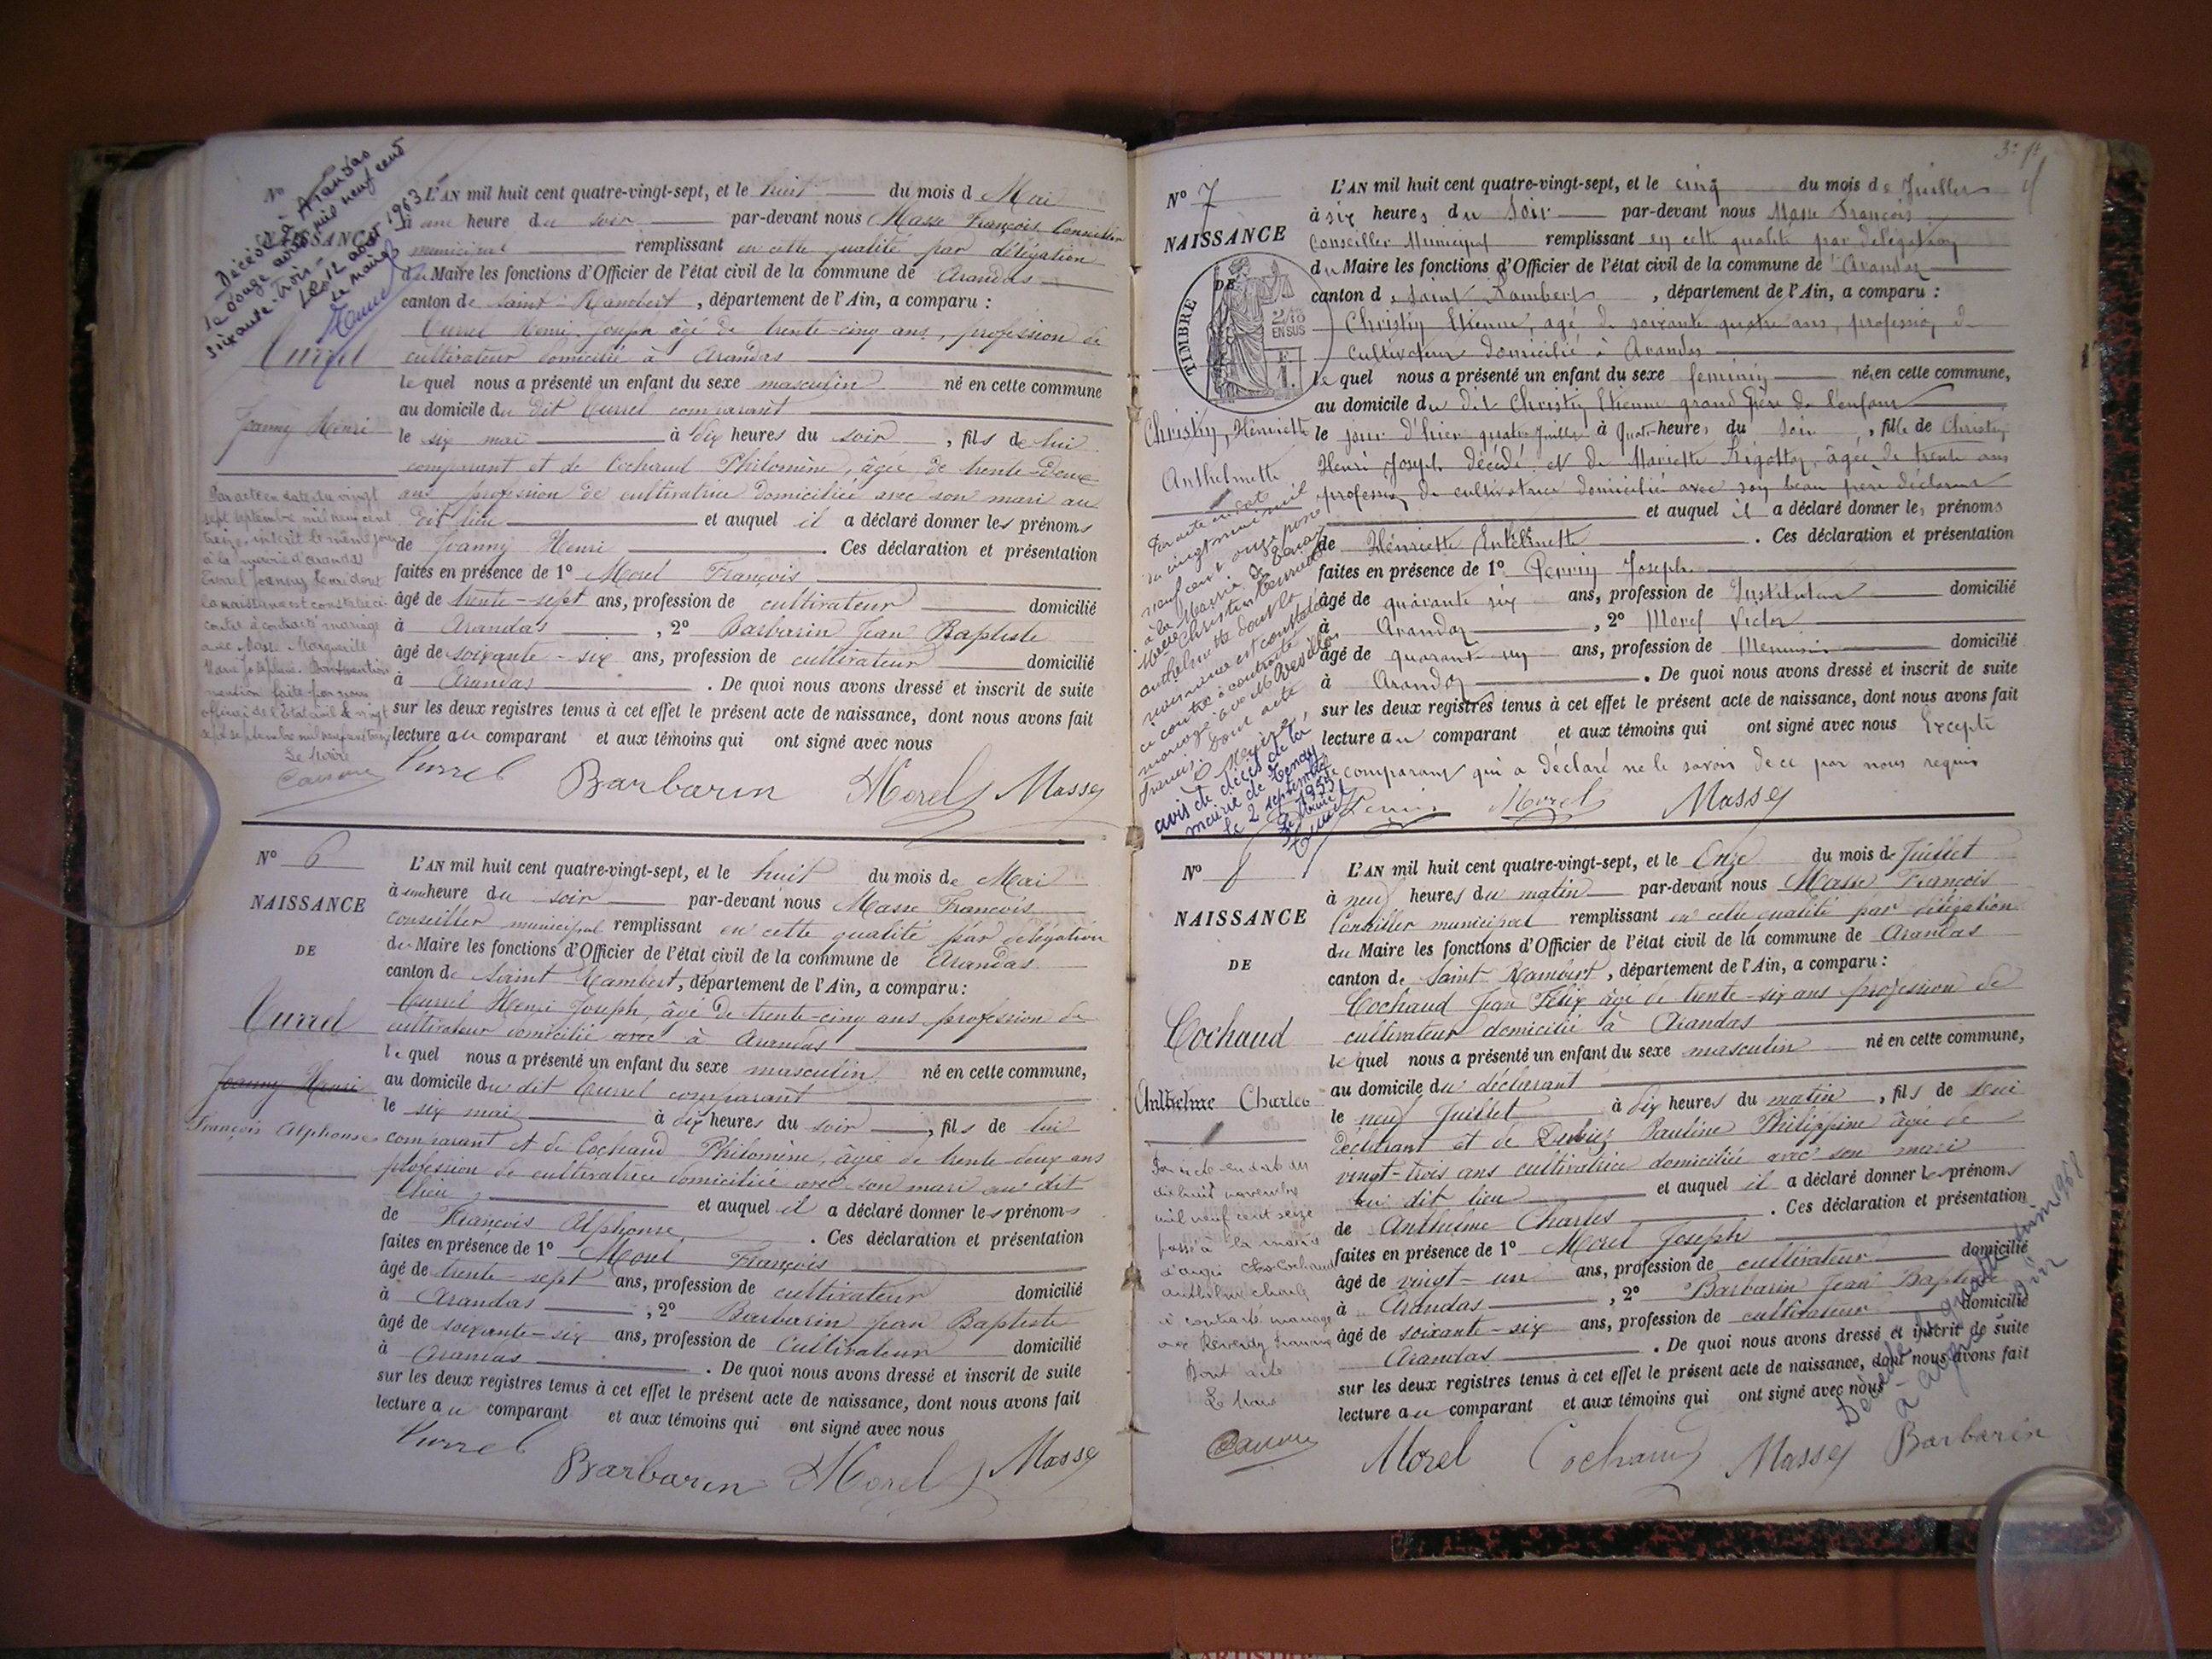 Nº
NAISSANCE
Décédé à Arandas
le douze août mil neuf cent
soixante-trois
Le 12 août 1963
Le maire
Currel
Joanny Henri
Par acte en date du vingt
sept septembre mil neuf cent
treize, inscrit le même jour
à la mairie d'Arandas
Currel Joanny Henri dont
la naissance est constatée ci-
contre a contracté mariage
avec Masse Marguerite
Marie Joséphine.
mention faite par nous
officier de l'Etat civil le vingt
sept septembre mil neuf cent treize
Le Maire
L'AN mil huit cent quatre-vingt-sept, et le huit du mois d Mai
à une heure du soir par-devant nous Masse François Conseiller
municipal remplissant en cette qualité par délégation
du Maire les fonctions d'Officier de l'état civil de la commune de Arandas
canton de Saint-Rambert, département de l'Ain, a comparu :
Currel Henri Joseph âgé de trente-cinq ans, profession de
cultivateur domicilié à Arandas
lequel nous a présenté un enfant du sexe masculin né en cette commune
au domicile du dit Currel comparant
le six mai à dix heures du soir, fils de lui
comparant et de Cochaud Philomène, âgée de trente-deux
ans profession de cultivatrice domiciliée avec son mari au
dit lieu et auquel il a déclaré donner les prénoms
de Joanny Henri. Ces déclaration et présentation
faites en présence de 1º Morel François
âgé de trente-sept ans, profession de cultivateur domicilié
à Arandas, 2º Barbarin Jean Baptiste
âgé de soixante-six ans, profession de cultivateur domicilié
à Arandas. De quoi nous avons dressé et inscrit de suite
sur les deux registres tenus à cet effet le présent acte de naissance, dont nous avons fait
lecture au comparant et aux témoins qui ont signé avec nous
Currel Barbarin Morel Masse
Nº 6
NAISSANCE
DE
Currel
Joanny Henri
François Alphonse
L'AN mil huit cent quatre-vingt-sept, et le huit du mois de Mai
à une heure du soir par-devant nous Masse François
Conseiller municipal remplissant en cette qualité par délégation
du Maire les fonctions d'Officier de l'état civil de la commune de Arandas
canton de Saint Rambert, département de l'Ain, a comparu :
Currel Henri Joseph, âgé de trente-cinq ans profession de
cultivateur domicilié avec à Arandas
lequel nous a présenté un enfant du sexe masculin né en cette commune,
au domicile du dit Currel comparant
le six mai à dix heures du soir, fils de lui
comparant et de Cochaud Philomène, âgée de trente-deux ans
profession de cultivatrice domiciliée avec son mari au dit
lieu et auquel il a déclaré donner les prénoms
de François Alphonse. Ces déclaration et présentation
faites en présence de 1º Morel François
âgé de trente-sept ans, profession de cultivateur domicilié
à Arandas, 2º Barbarin Jean Baptiste
âgé de soixante-six ans, profession de Cultivateur domicilié
à Arandas. De quoi nous avons dressé et inscrit de suite
sur les deux registres tenus à cet effet le présent acte de naissance, dont nous avons fait
lecture au comparant et aux témoins qui ont signé avec nous
Currel Barbarin Morel Masse
Nº 7
NAISSANCE
DE
TIMBRE
2/10 EN SUS
Christin, Henriette
Anthelmette
avis de décès de la
mairie de Tenay
le 2 septembre
L'AN mil huit cent quatre-vingt-sept, et le cinq du mois de Juillet
à six heures du soir par-devant nous Masse François
Conseiller Municipal remplissant en cette qualité par délégation
du Maire les fonctions d'Officier de l'état civil de la commune de Arandas
canton de Saint Rambert, département de l'Ain, a comparu :
Christin Etienne, agé de soixante quatre ans, profession de
cultivateur domicilié à Arandas
lequel nous a présenté un enfant du sexe feminin né en cette commune,
au domicile du dit Christin Etienne grand père de l'enfant
le jour d'hier quatre Juillet à quatre heures du soir, fille de Christin
Henri Joseph décédé et de Mariette Rigottaz, âgée de trente ans
profession de cultivatrice domiciliée avec son beau père déclarant
et auquel il a déclaré donner les prénoms
de Henriette Anthelmette. Ces déclaration et présentation
faites en présence de 1º Perrin Joseph
âgé de quarante six ans, profession de Instituteur domicilié
à Arandas, 2º Morel Victor
âgé de quarante un ans, profession de Menuisier domicilié
à Arandas. De quoi nous avons dressé et inscrit de suite
sur les deux registres tenus à cet effet le présent acte de naissance, dont nous avons fait
lecture au comparant et aux témoins qui ont signé avec nous Excepté
le comparant qui a déclaré ne le savoir de ce par nous requis
Perrin Morel Masse
Nº 8
NAISSANCE
DE
Cochaud
Anthelme Charles
Par acte en date du
dix huit novembre
mil neuf cent seize
passé à la mairie
Cochaud
Anthelme Charles
a contracté mariage
avec
Dont acte
Le Maire
L'AN mil huit cent quatre-vingt-sept, et le Onze du mois de Juillet
à neuf heures du matin par-devant nous Masse François
Conseiller municipal remplissant en cette qualité par délégation
du Maire les fonctions d'Officier de l'état civil de la commune de Arandas
canton de Saint Rambert, département de l'Ain, a comparu :
Cochaud Jean Félix âgé de trente-six ans profession de
cultivateur domicilié à Arandas
lequel nous a présenté un enfant du sexe masculin né en cette commune,
au domicile du déclarant
le neuf Juillet à dix heures du matin, fils de lui
déclarant et de Pauline Philippine âgée de
vingt-trois ans cultivatrice domiciliée avec son mari
au dit lieu et auquel il a déclaré donner les prénoms
de Anthelme Charles. Ces déclaration et présentation
faites en présence de 1º Morel Joseph
âgé de vingt-un ans, profession de cultivateur domicilié
à Arandas, 2º Barbarin Jean Baptiste
âgé de soixante-six ans, profession de cultivateur domicilié
Arandas. De quoi nous avons dressé et inscrit de suite
sur les deux registres tenus à cet effet le présent acte de naissance, dont nous avons fait
lecture au comparant et aux témoins qui ont signé avec nous
Morel Cochaud Masse Barbarin